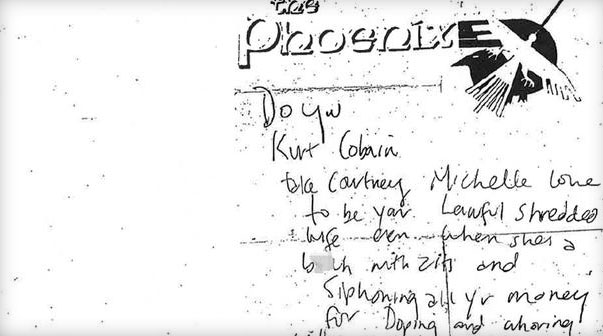 the
Phoenix
Do you
Kurt Cobain
take Courtney Michelle Love
to be your Lawful shredded
wife even when shes a
b ch with zits and
siphoning all yr money
for Doping and whoring